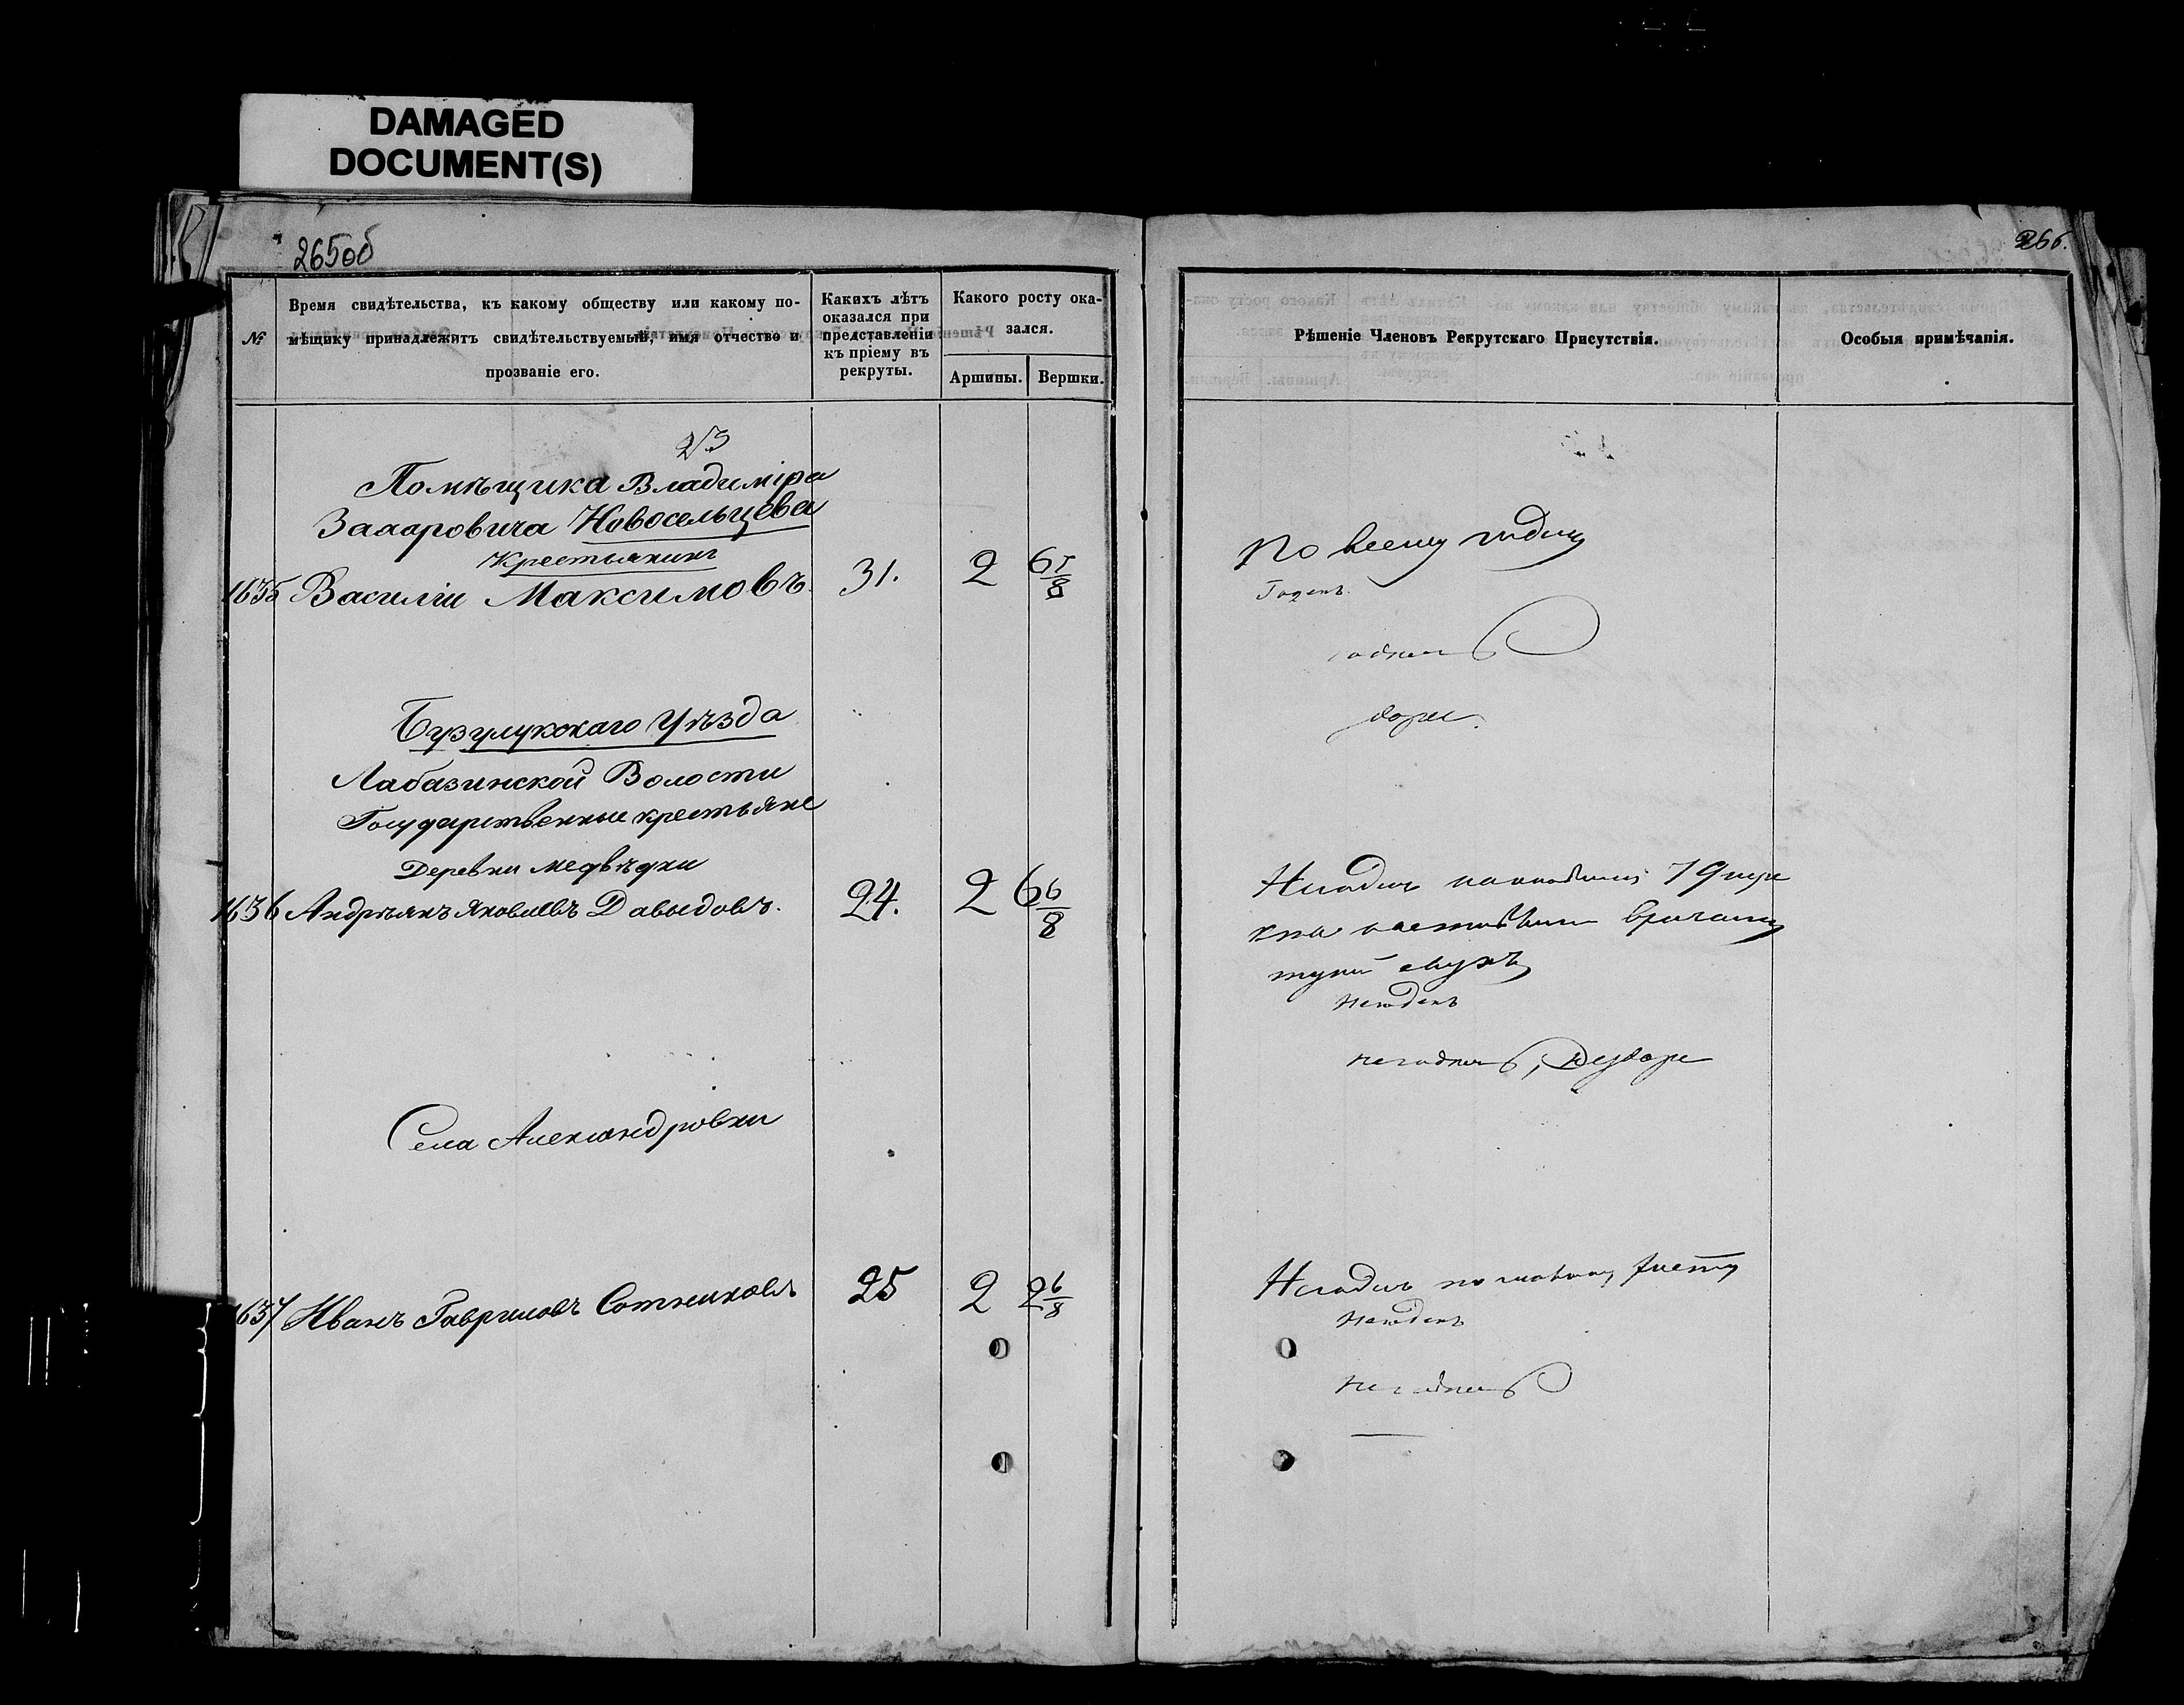 DAMAGED
DOCUMENT(S)
265об
266.
№
Время свидѣтельства, къ какому обществу или какому по-
мѣщику принадлежитъ свидѣтельствуемый, имя отчество и
прозваніе его.
Какихъ лѣтъ
оказался при
представленіи
къ пріему въ
рекруты.
Какого росту ока-
зался.
Аршины.
Вершки.
Рѣшеніе Членовъ Рекрутскаго Присутствія.
Особыя примѣчанія.
Помѣщика Владиміра
Захаровича Новосельцева
Крестьянинъ
1635 Василій Максимовъ. 31. 2 6 5/8
По всему годенъ
Годенъ.
годенъ
Бузулукскаго Уѣзда
Лабазинской Волости
Государственные крестьяне
Деревни Медвѣдки
1636 Андрѣянъ Яковлевъ Давыдовъ. 24. 2 6 6/8
Негоденъ
тупой слухъ
Негоденъ
негоденъ
Села Александровки
1637 Иванъ Гавриловъ Сотниковъ 25 2 2 6/8
Негоденъ по малому росту
Негоденъ
негоденъ